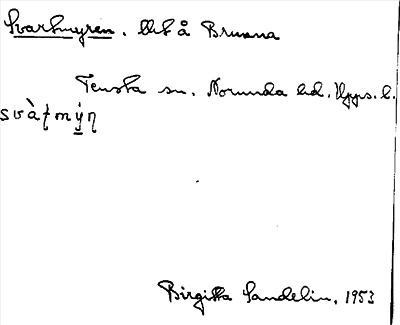 Svartmyren. Utt å Brunna
Tensta sn. Norunda hd. Upps. l.
svàtmýn
Birgitta Sandelin, 1953